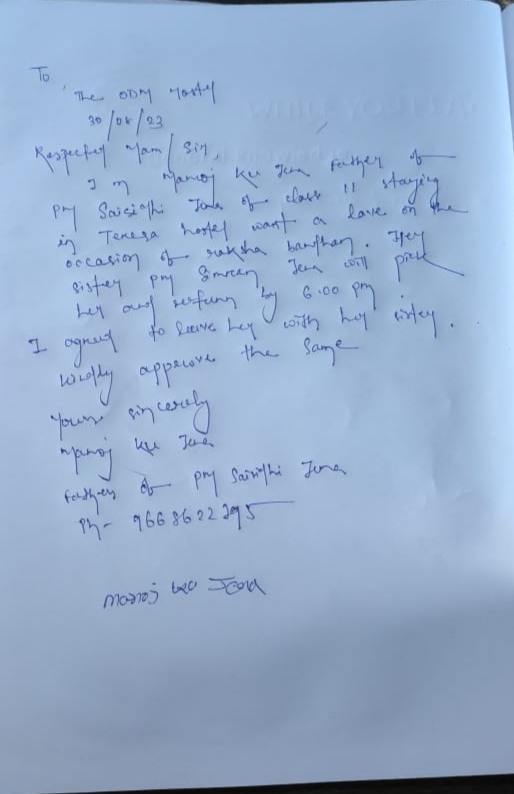 To
The ODM Hostel
30/08/23
Respected Mam/Sir,
I m Manoj Ku Jena Father of
Saisidhi Jena of class 11 staying
in Teresa hostel want a leave on the
occasion of raksha bandhan. Her
sister Simran Jena will pick
her and return by 6.00 pm.
I agreed to leave her with her sister.
kindly approve the same
Yours sincerely
Manoj Ku Jena
Father of Saisidhi Jena
Ph- 9668622295
Manoj Ku Jena